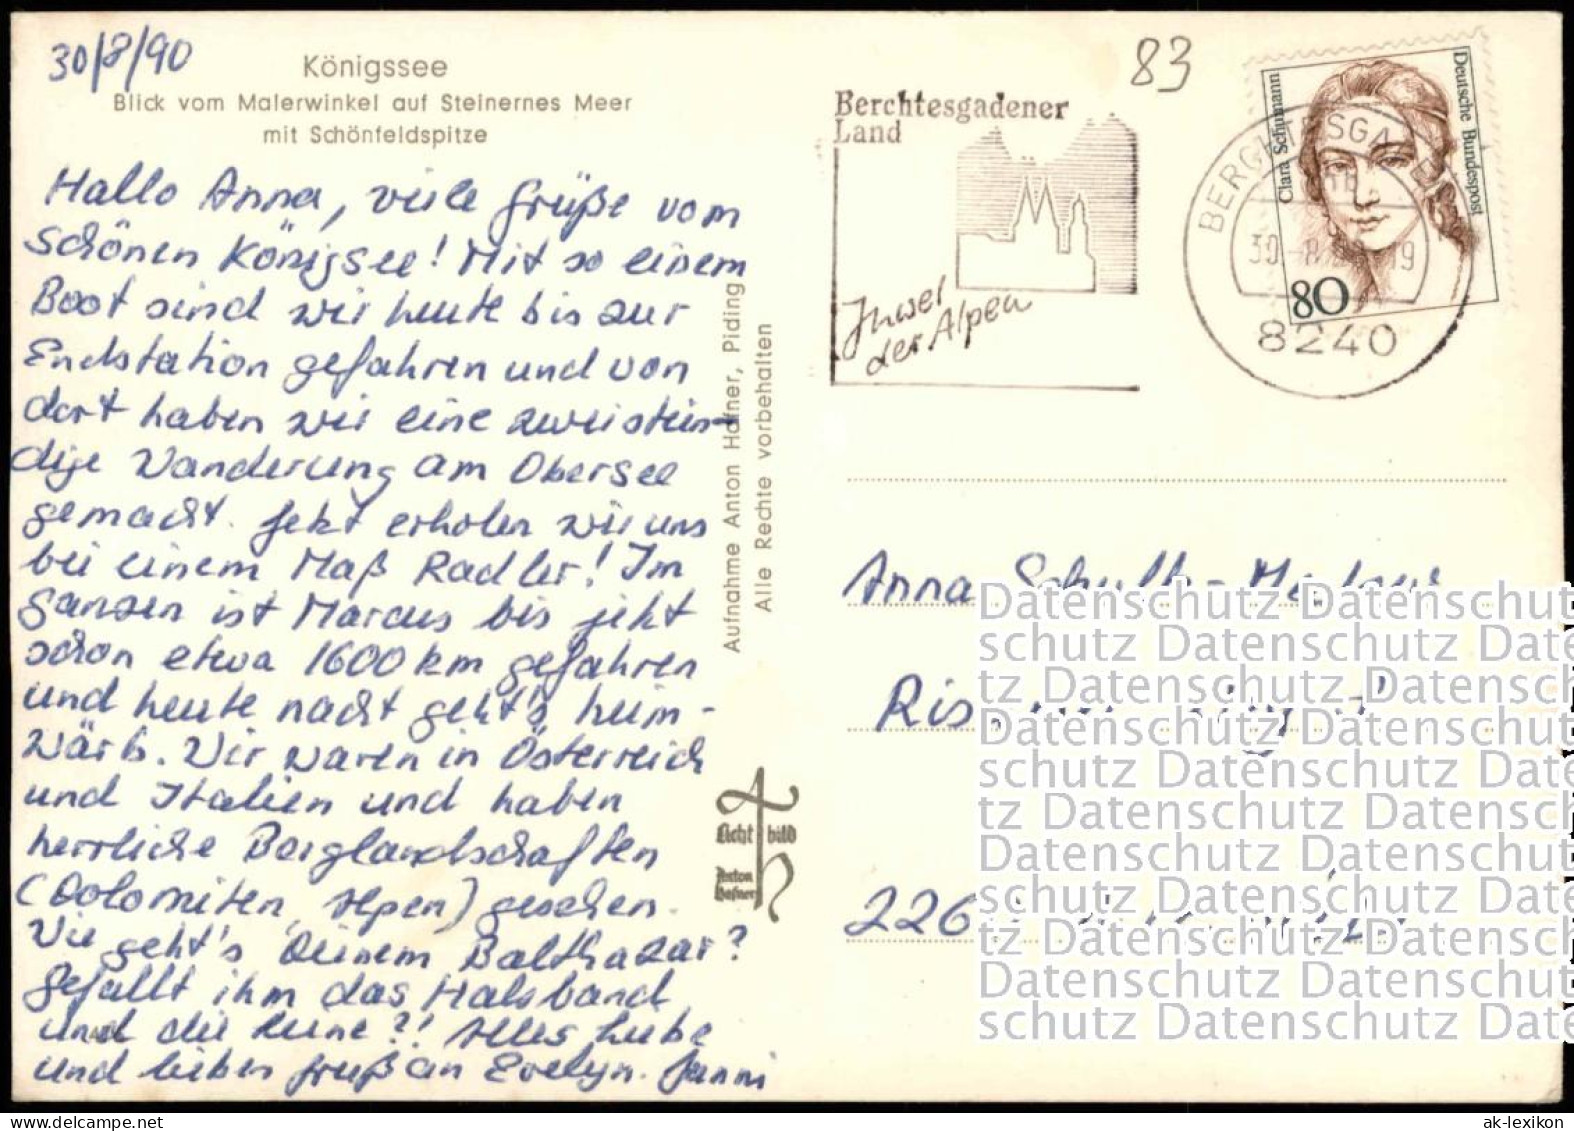 30/8/90
Königssee
Blick vom Malerwinkel auf Steinernes Meer
mit Schönfeldspitze
Hallo Anna, viele Grüße vom
schönen Königsee! Mit so einem
Boot sind wir heute bis zur
Endstation gefahren und von
dort haben wir eine zweistün-
dige Wanderung am Obersee
gemacht. Jetzt erholen wir uns
bei einem Maß Radler! Im
ganzen ist Marcus bis jetzt
schon etwa 1600 km gefahren
und heute nacht geht's heim-
wärts. Wir waren in Österreich
und Italien und haben
herrliche Berglandschaften
(Dolomiten, Alpen) gesehen.
Wie geht's Deinem Balthazar?
Gefällt ihm das Halsband
und die Leine?! Alles Liebe
und lieben Gruß an Evelyn. Janni
Aufnahme Anton Hafner, Piding
Alle Rechte vorbehalten
Licht bild
Anton
Hafner
83
Berchtesgadener
Land
Juwel
der Alpen
Clara Schumann
Deutsche Bundespost
80
BERCHTESGADEN
8240
Anna
226
Datenschutz Datenschut
schutz Datenschutz Date
tz Datenschutz Datensch
Datenschutz Datenschut
schutz Datenschutz Date
tz Datenschutz Datensch
Datenschutz Datenschut
schutz Datenschutz Date
tz Datenschutz Datensch
Datenschutz Datenschut
schutz Datenschutz Date
ak-lexikon